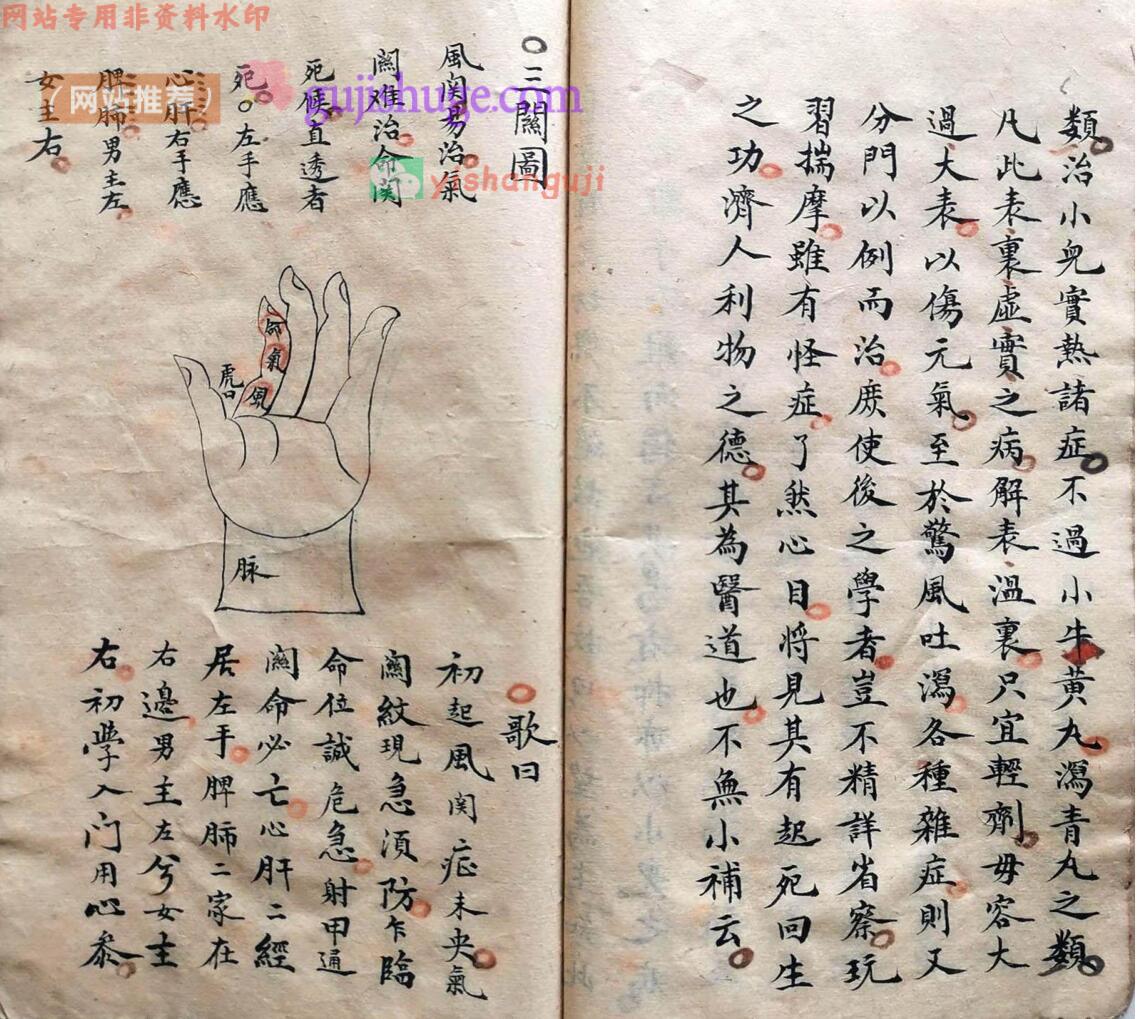 網站专用非资料水印
類治小兒實熱諸症不過小牛黄丸瀉青丸之類
凡此表裏虛實之病解表溫裏只宜輕劑毋容大
過大表以傷元氣至於驚風吐瀉各種雜症則又
分門以例而治庶使後之學者豈不精詳省察玩
習揣摩雖有怪症了然心目將見其有起死回生
之功濟人利物之德其為醫道也不無小補云
三關圖
風関易治氣
關难治命関
死候直透者
死左手應
心肝右手應
脾肺男主左
女主右
网站推荐
gujishuge.com
yishanguji
命
氣
風
虎口
脉
歌曰
初起風関症未央氣
關紋現急須防乍臨
命位誠危急射甲通
關命必亡心肝二經
居左手脾肺二家在
右邊男主左兮女主
右初學入门用心叅